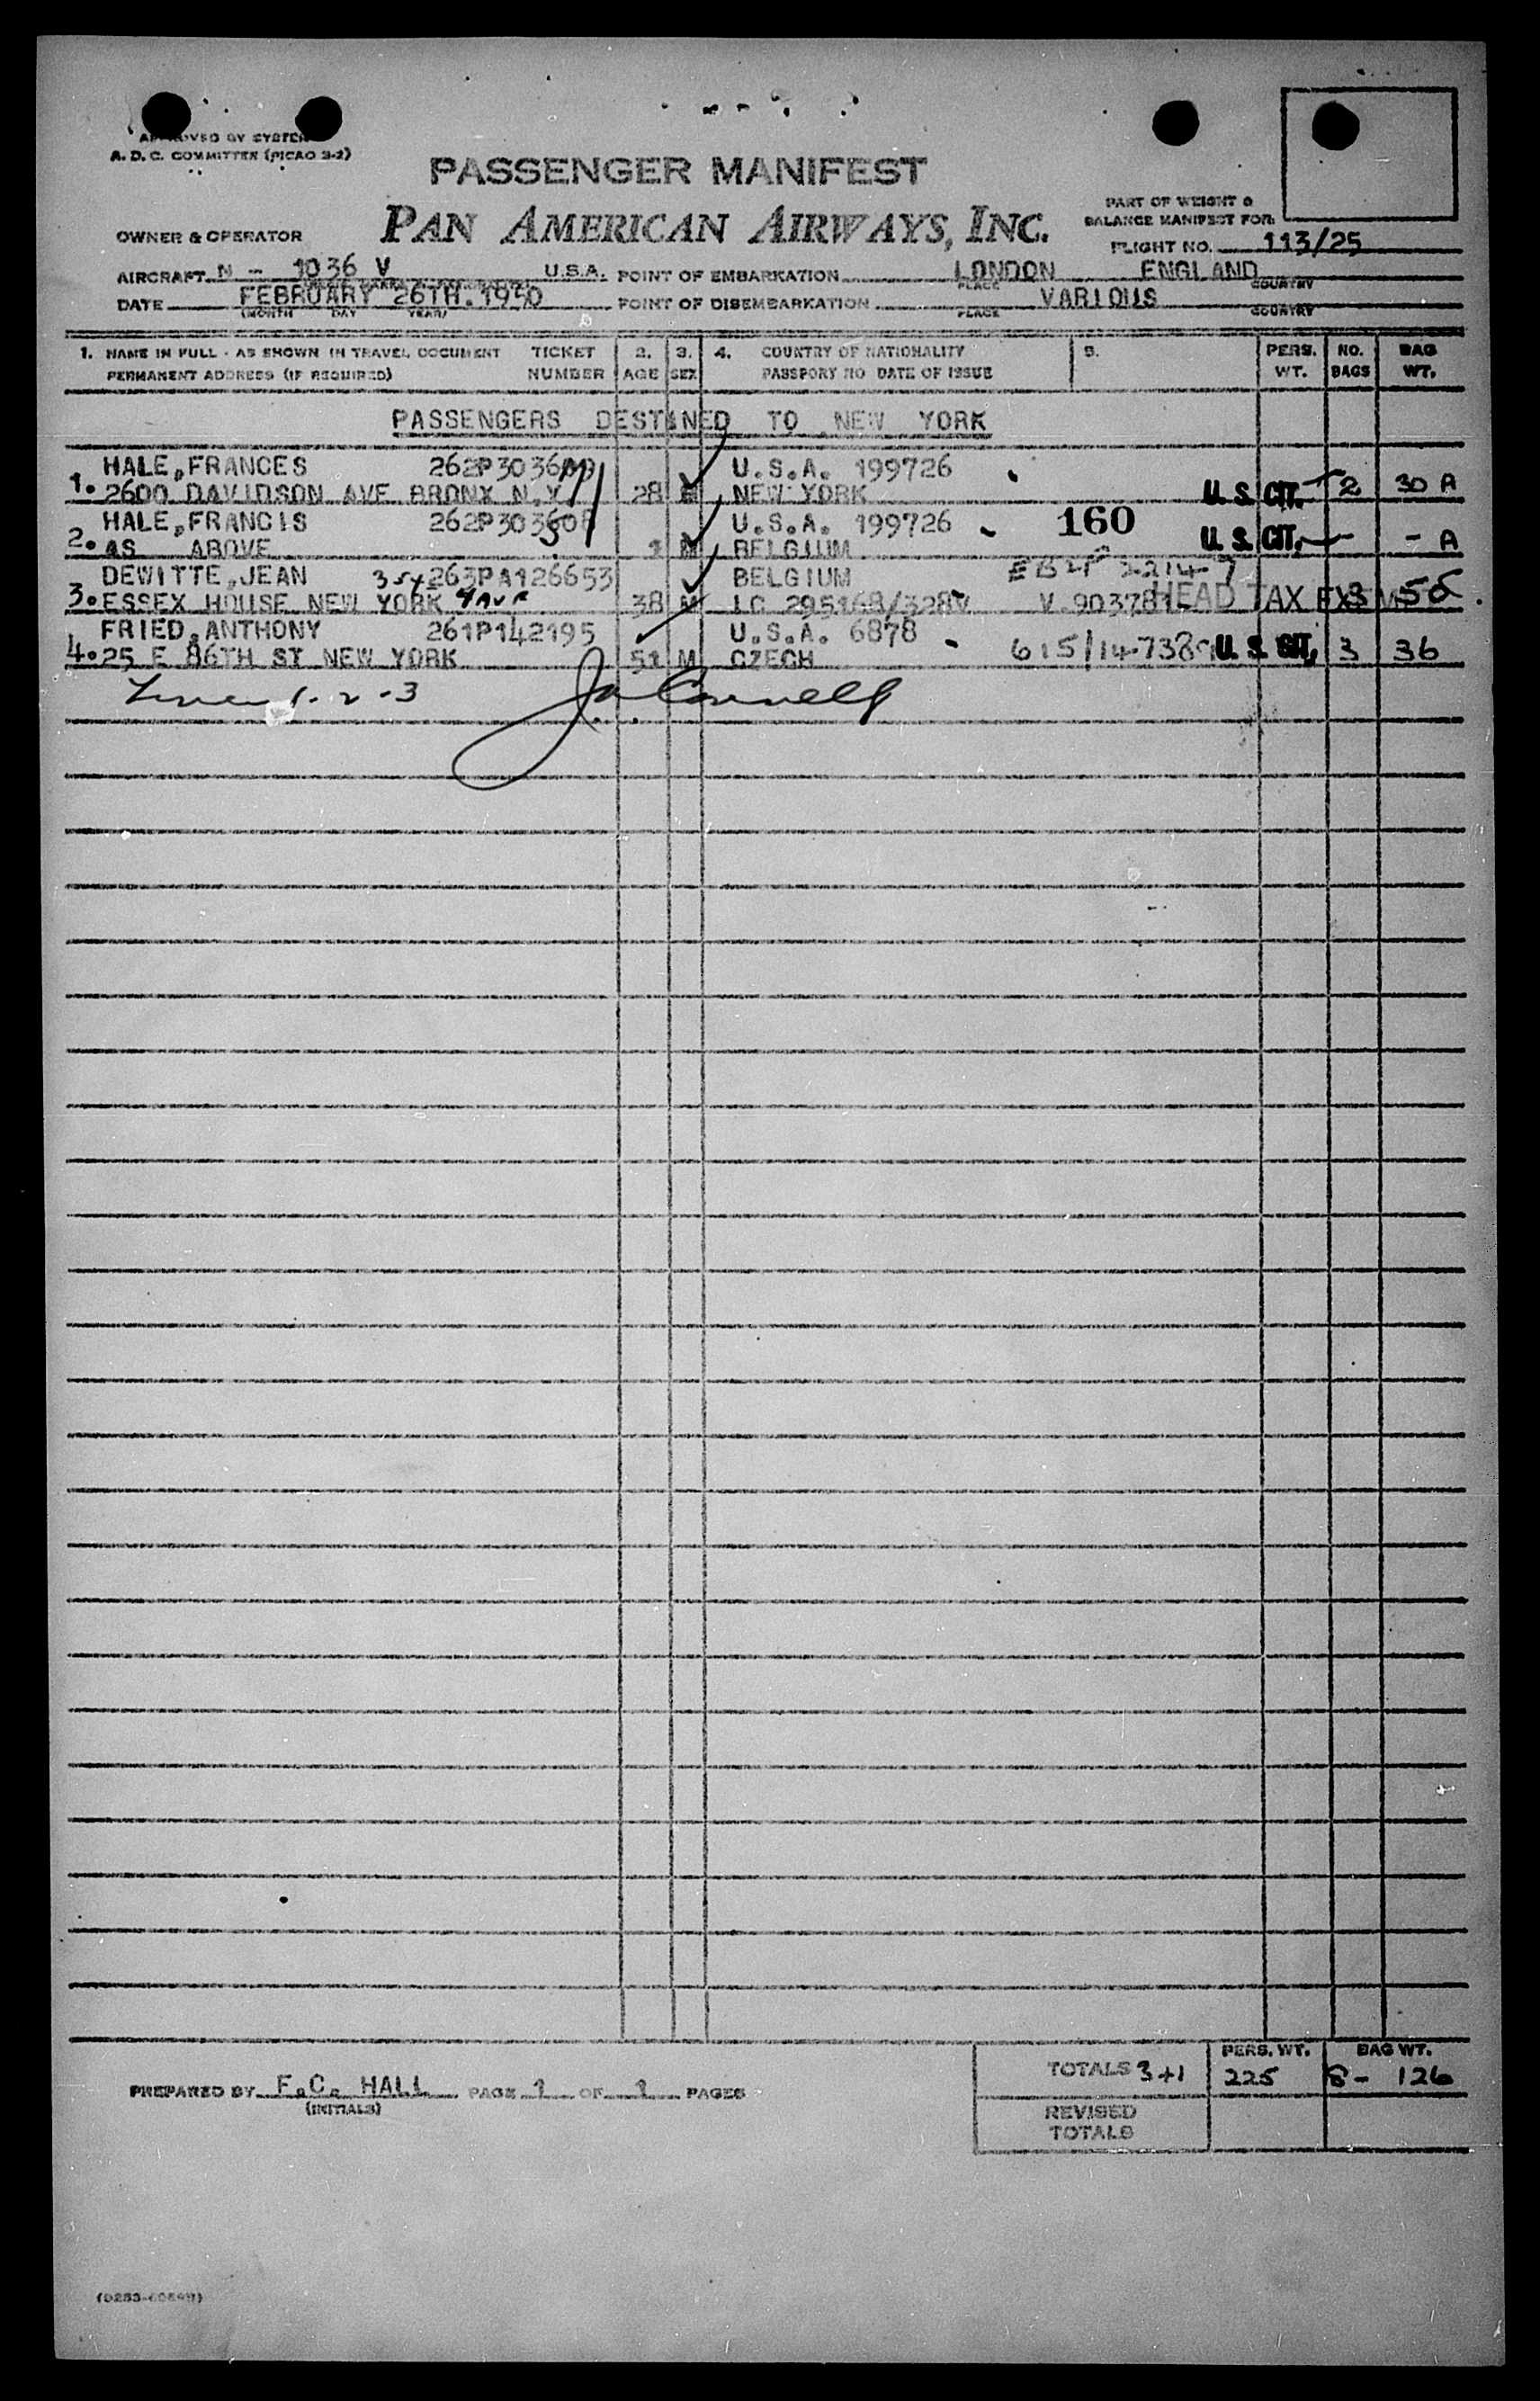 APPROVED BY SYSTEM
A. D. C. COMMITTEE (PICAO 3-2)
PASSENGER MANIFEST
PAN AMERICAN AIRWAYS, INC.
PART OF WEIGHT &
BALANCE MANIFEST FOR:
OWNER & OPERATOR
FLIGHT NO. 113/25
AIRCRAFT N - 1036 V U.S.A. POINT OF EMBARKATION LONDON ENGLAND
PLACE COUNTRY
DATE FEBRUARY 26TH. 1950 POINT OF DISEMBARKATION VARIOUS
(MONTH DAY YEAR) PLACE COUNTRY
1. NAME IN FULL - AS SHOWN IN TRAVEL DOCUMENT TICKET 2. 3. 4. COUNTRY OF NATIONALITY 5. PERS. NO. BAG
PERMANENT ADDRESS (IF REQUIRED) NUMBER AGE SEX PASSPORT NO DATE OF ISSUE WT. BAGS WT.
PASSENGERS DESTINED TO NEW YORK
HALE, FRANCES 262P30360 U.S.A. 199726
1. 2600 DAVIDSON AVE BRONX N.Y. 28 NEW YORK U. S. CIT. 2 30 A
HALE, FRANCIS 262P30360 U.S.A. 199726 160
2. AS ABOVE 1 M BELGIUM U. S. CIT. - - A
DEWITTE, JEAN 263PA126653 BELGIUM
3. ESSEX HOUSE NEW YORK 38 M LC 295168/328V V.903781 HEAD TAX EX 3
FRIED, ANTHONY 261P142195 U.S.A. 6878
4. 25 E 86TH ST NEW YORK 51 M CZECH 615/14-7389 U. S. CIT. 3 36
1-2-3
PERS. WT. BAG WT.
TOTALS 3+1 225 8- 126
PREPARED BY F.C. HALL PAGE 1 OF 1 PAGES
(INITIALS)
REVISED
TOTALS